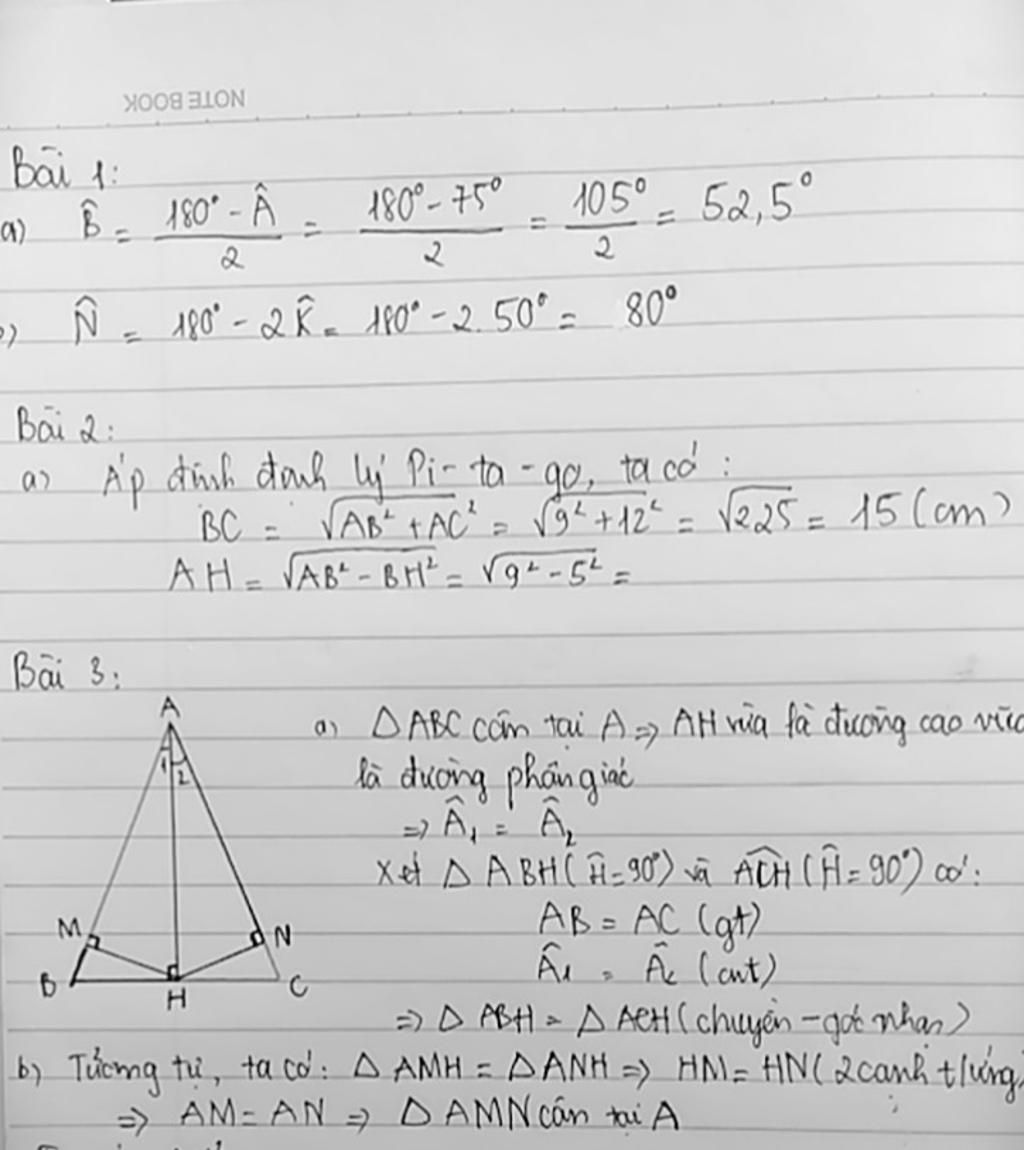 NOTE BOOK
Bài 1:
a) B̂ = (180° - Â)/2 = (180° - 75°)/2 = 105°/2 = 52,5°
) N̂ = 180° - 2K̂ = 180° - 2.50° = 80°
Bài 2:
a) Áp định định lý Pi-ta-go, ta có:
BC = √(AB² + AC²) = √(9² + 12²) = √225 = 15 (cm)
AH = √(AB² - BH²) = √(9² - 5²) =
Bài 3:
a) △ABC cân tại A => AH vừa là đường cao vừa
là đường phân giác
=> Â₁ = Â₂
Xét △ABH (Ĥ = 90°) và ACH (Ĥ = 90°) có:
AB = AC (gt)
Â₁ = Â₂ (cmt)
=> △ABH = △ACH (chuyền - góc nhọn)
A
1
2
M
N
B
H
C
b) Tương tự, ta có: △AMH = △ANH => HM = HN (2 cạnh t/ứng)
=> AM = AN => △AMN cân tại A